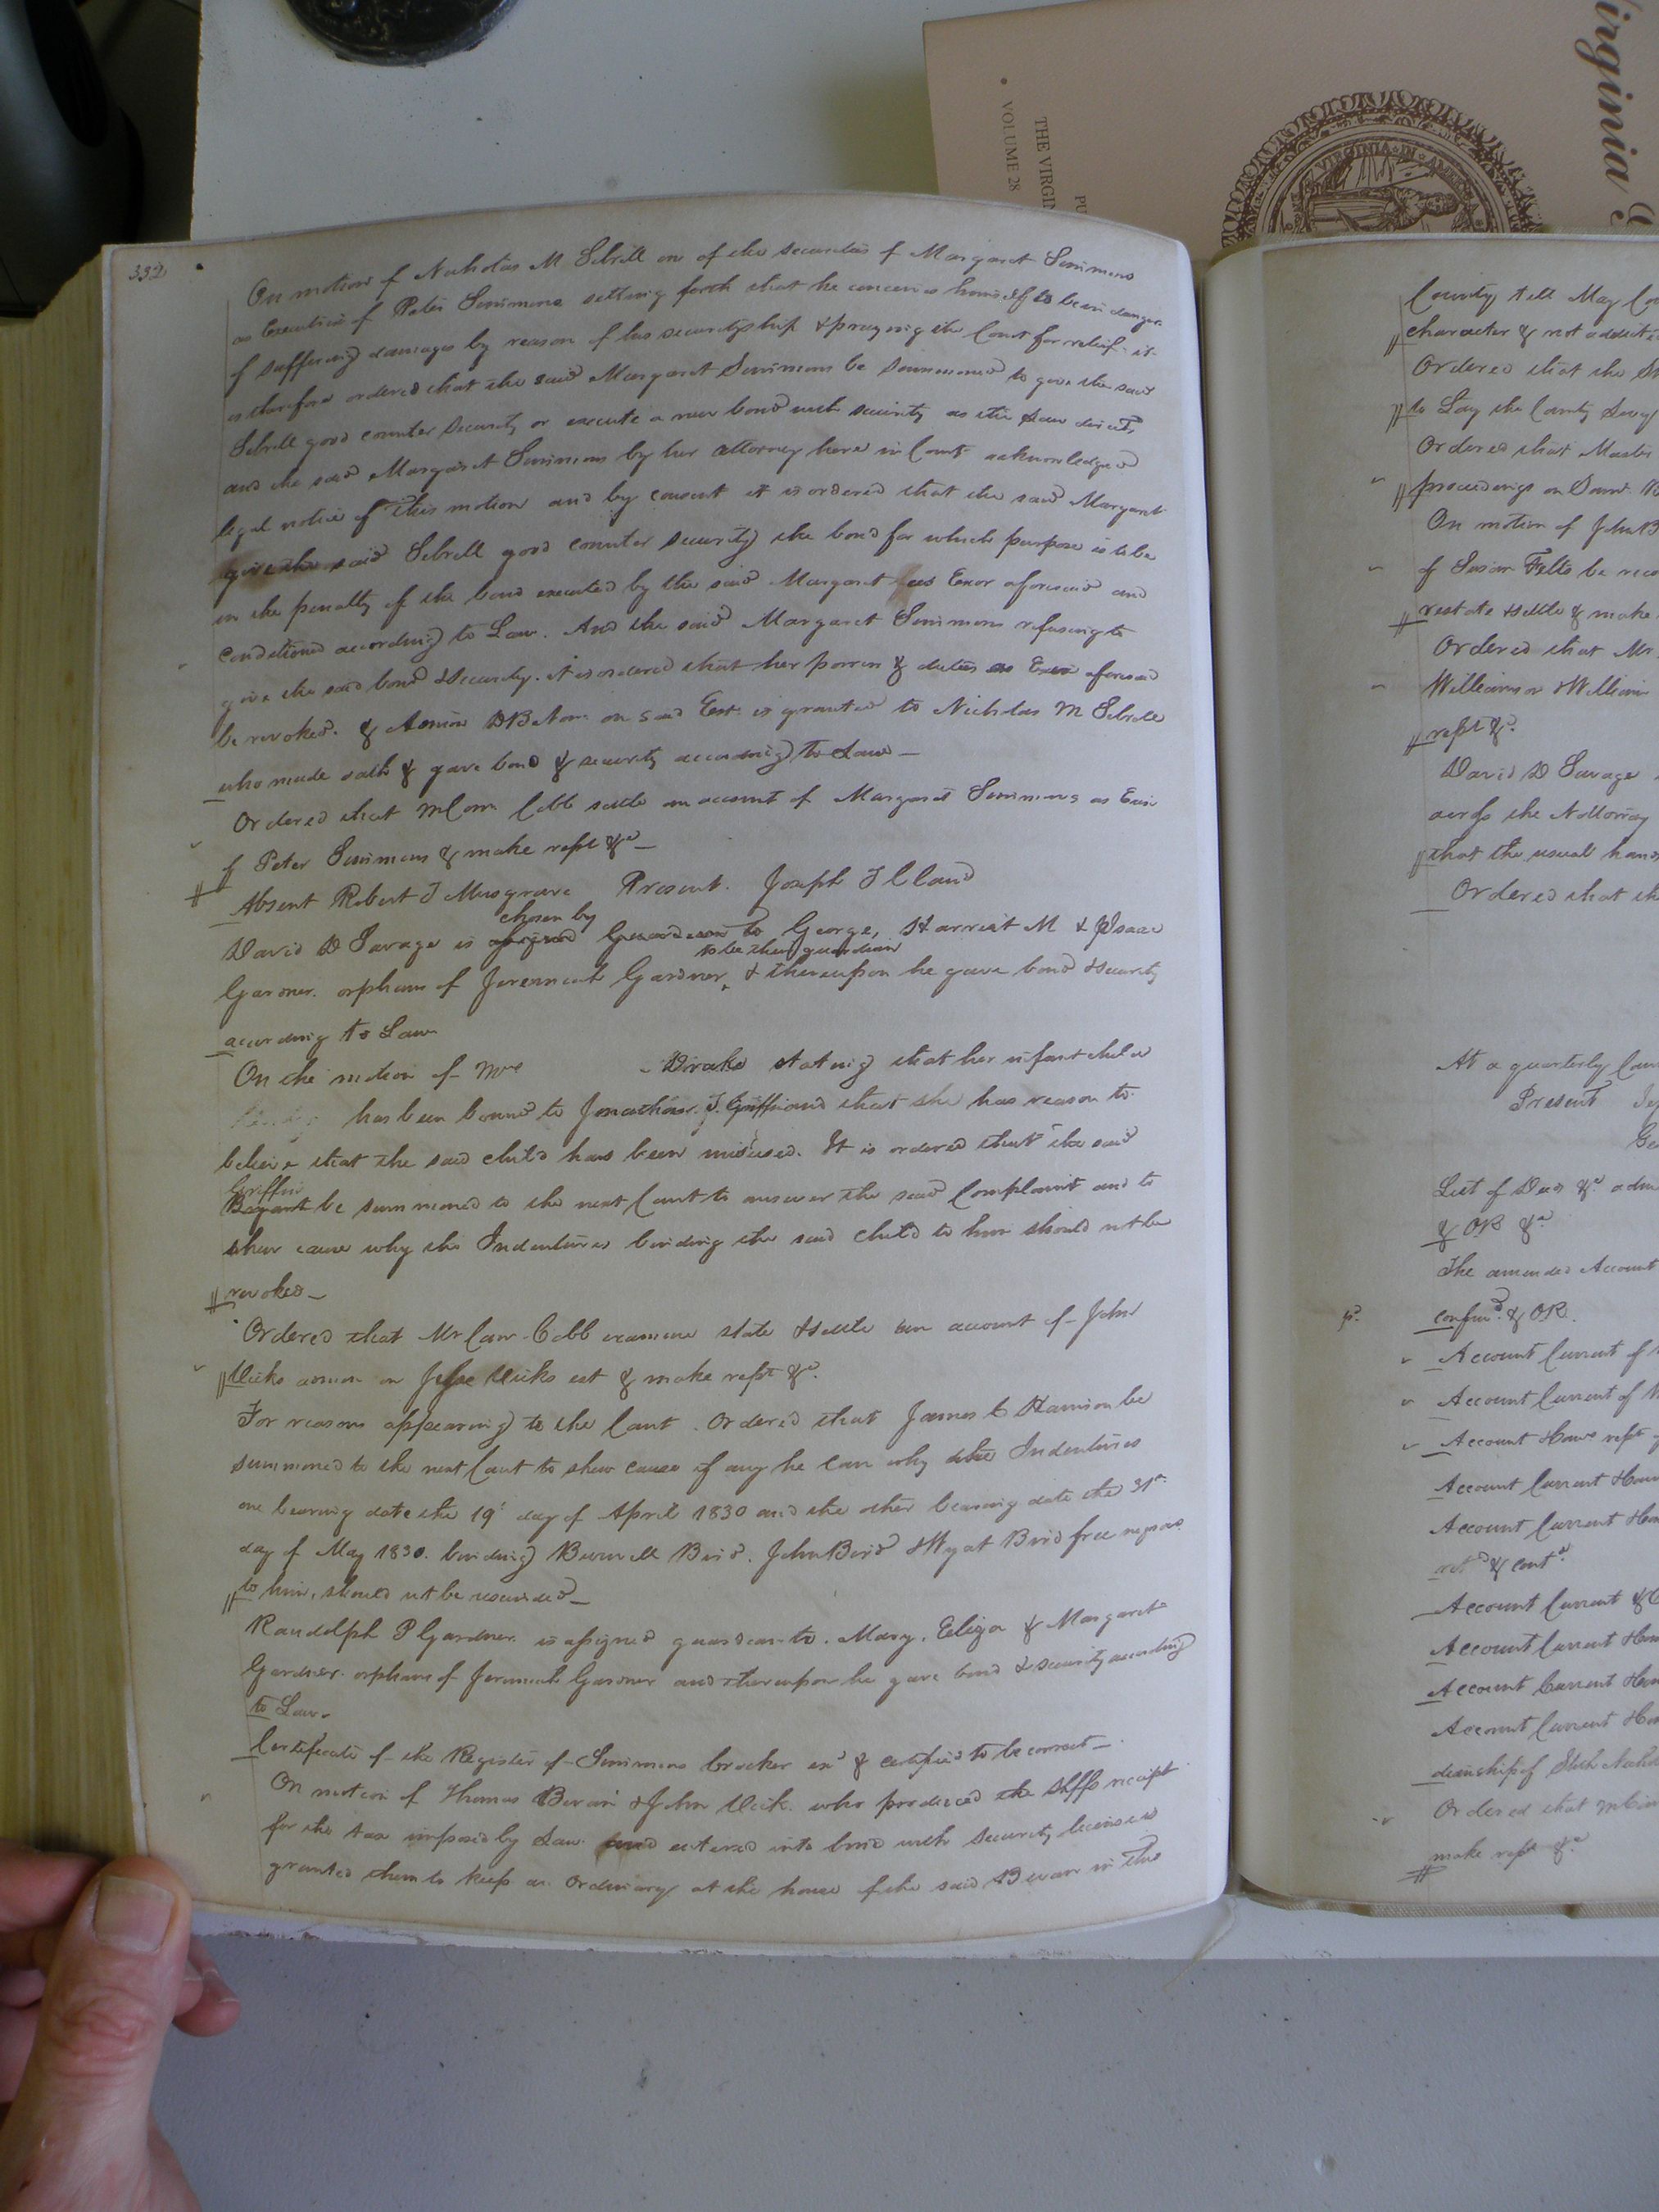 Virginia
THE VIRGIN
VOLUME 28
PU
VIRGINIA IN
332
On motion of Nicholas M Sebrell one of the securities of Margaret Simmons
as Executrix of Peter Simmons setting forth that he conceives himself to be in danger
of suffering damages by reason of his securityship & praying the Court for relief. it
is therefore ordered that the said Margaret Simmons be summoned to give the said
Sebrell good counter security or execute a new bond with security as the Law directs,
and the said Margaret Simmons by her attorney here in Court acknowledged
legal notice of this motion and by consent it is ordered that the said Margaret
give the said Sebrell good counter security the bond for which purpose is to be
in the penalty of the bond executed by the said Margaret as Exor aforesaid and
conditioned according to Law. And the said Margaret Simmons refusing to
give the said bond & security. it is ordered that her powers & duties as Exor aforesaid
be revoked. & Admon DB Non on said Est. is granted to Nicholas M Sebrell
who made oath & gave bond & security according to Law —
Ordered that Mr Com Cobb settle an account of Margaret Simmons as Exix
of Peter Simmons & make rept &c —
Absent Robert T Musgrave Present. Joseph T Claud
chosen by
David D Savage is assigned Guardian to George, Harriet M & Isaac
to be their guardian
Gardner. orphans of Jeremiah Gardner, & thereupon he gave bond & security
according to Law
On the motion of Mrs Drake stating that her infant child
has been bound to Jonathan. J. Griffin and that she has reason to
believe that the said child has been misused. It is ordered that the said
Griffin
Bryant be summoned to the next Court to answer the said Complaint and to
shew cause why the Indentures binding the said child to him should not be
revoked —
Ordered that Mr Com. Cobb examine state & settle an account of John
Vicks admon on Jesse Vicks est & make rept &c.
For reasons appearing to the Court. Ordered that James C Harrison be
summoned to the next Court to shew cause if any he can why the Indentures
one bearing date the 19t day of April 1830 and the other bearing date the 31st
day of May 1830. binding Burwell Bird. John Bird & Wyat Bird free negroes
to him, should not be rescinded —
Randolph P Gardner is assigned guardian to. Mary, Eliza & Margaret
Gardner. orphans of Jeremiah Gardner and thereupon he gave bond & security according
to Law.
Certificate of the Register of Simmons brooker exd & certified to be correct —.
On motion of Thomas Bevan & John Vick. who produced the Shffs receipt
for the tax imposed by Law and entered into bond with security license is
granted them to keep an Ordinary at the house of the said Bevan in this
County till May Co
character & not addict
Ordered that the Sh
to Lay the County Levy
Ordered that Master
proceedings on
On motion of John B
of Susan Felts be
restate & settle & make
Ordered that Mr
Williamson & William
rept &c.
David D Savage
across the Nottoway
that the usual hands
Ordered that the
At a quarterly Cour
Present
List of Deeds &c
& OR &c
The amended Account
confird & OR.
Account Current of
Account Current of
Account & Comrs rept
Account Current & Com
Account Current & Com
ret & contd.
Account Current & C
Account Current & Com
Account Current & Com
Account Current & Com
dianship of
Ordered that Mr Com
make rept &c